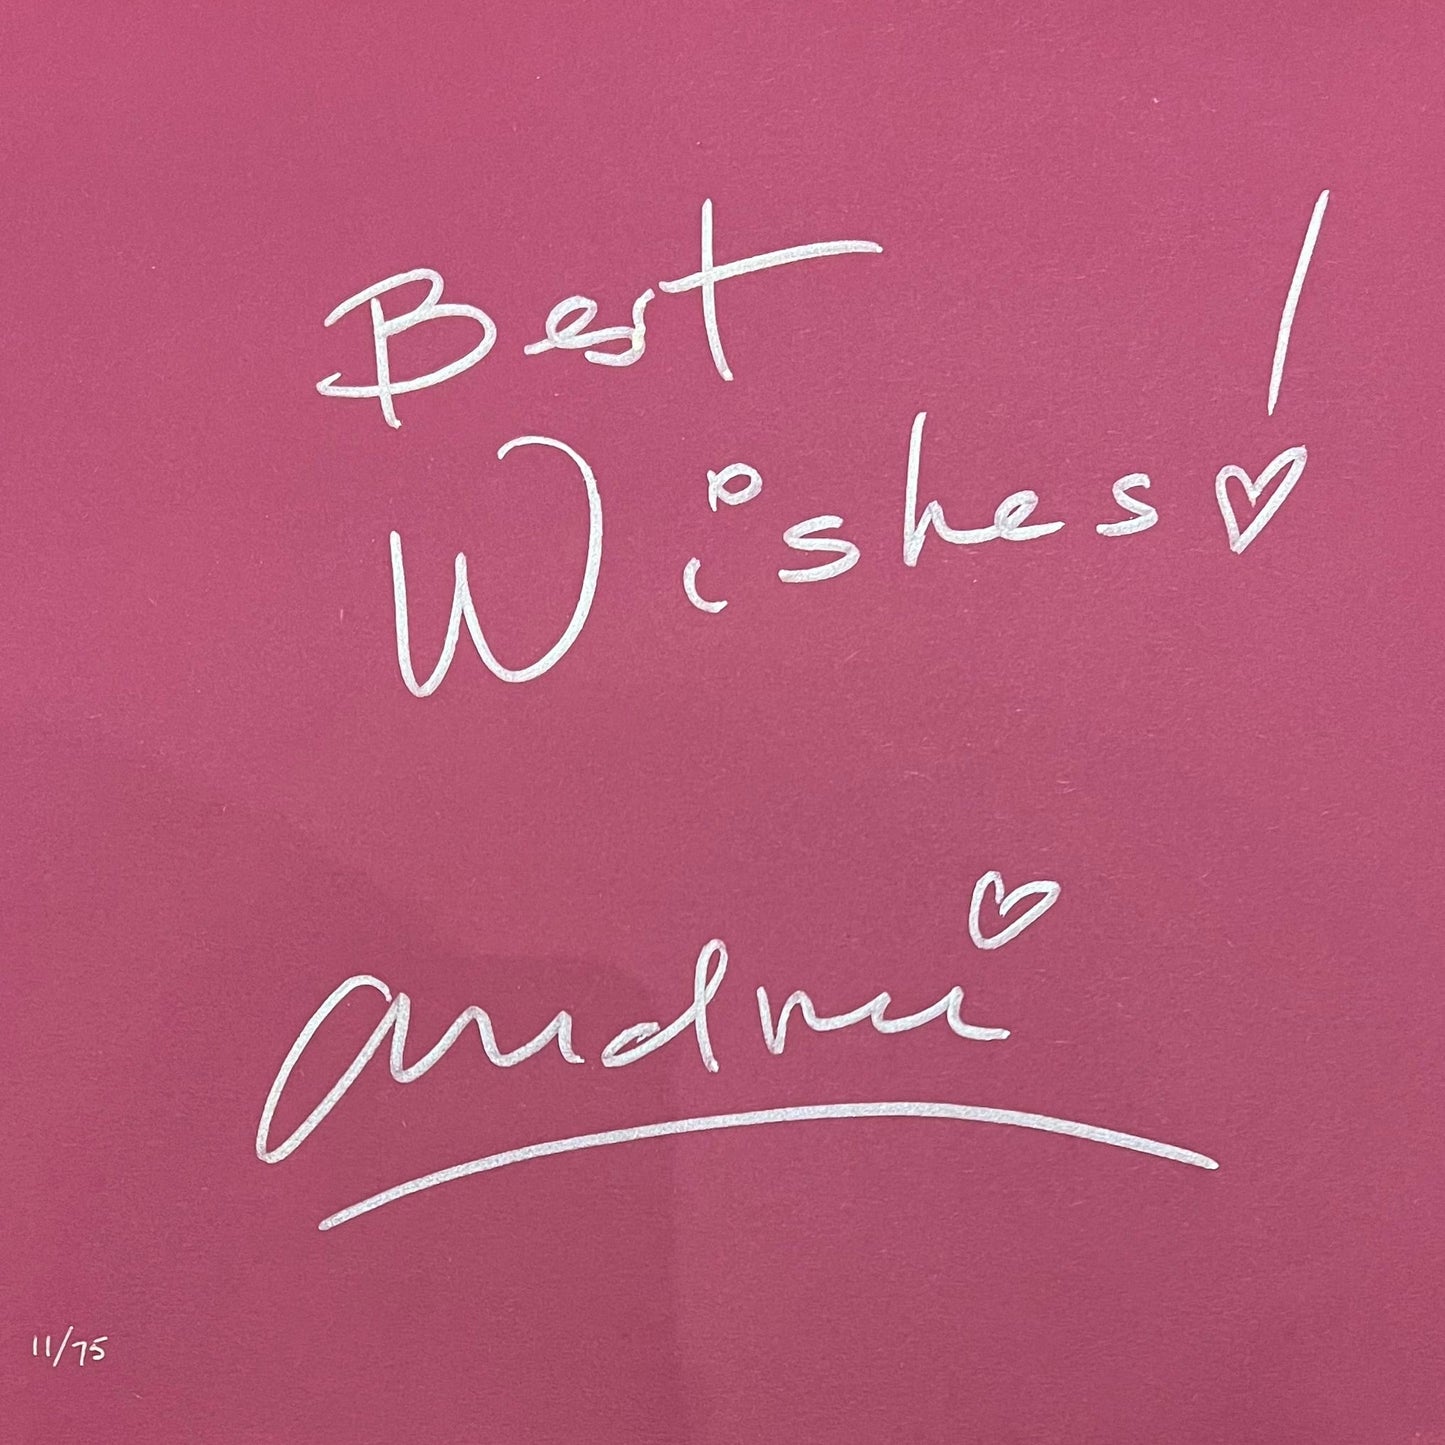 Best
Wishes!
11/75